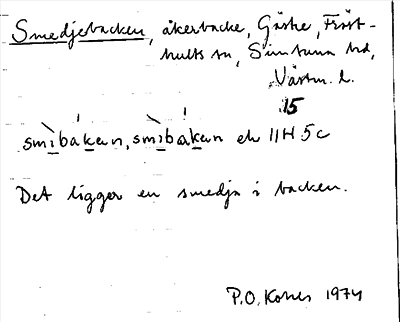 Smedjebacken, åkerbacke, Gäste, Fröst-
hults sn, Simtuna hd,
Västm. l.
15
smibakan, smibakan ek 11H 5c
Det ligger en smedja i backen.
P.O. 1974